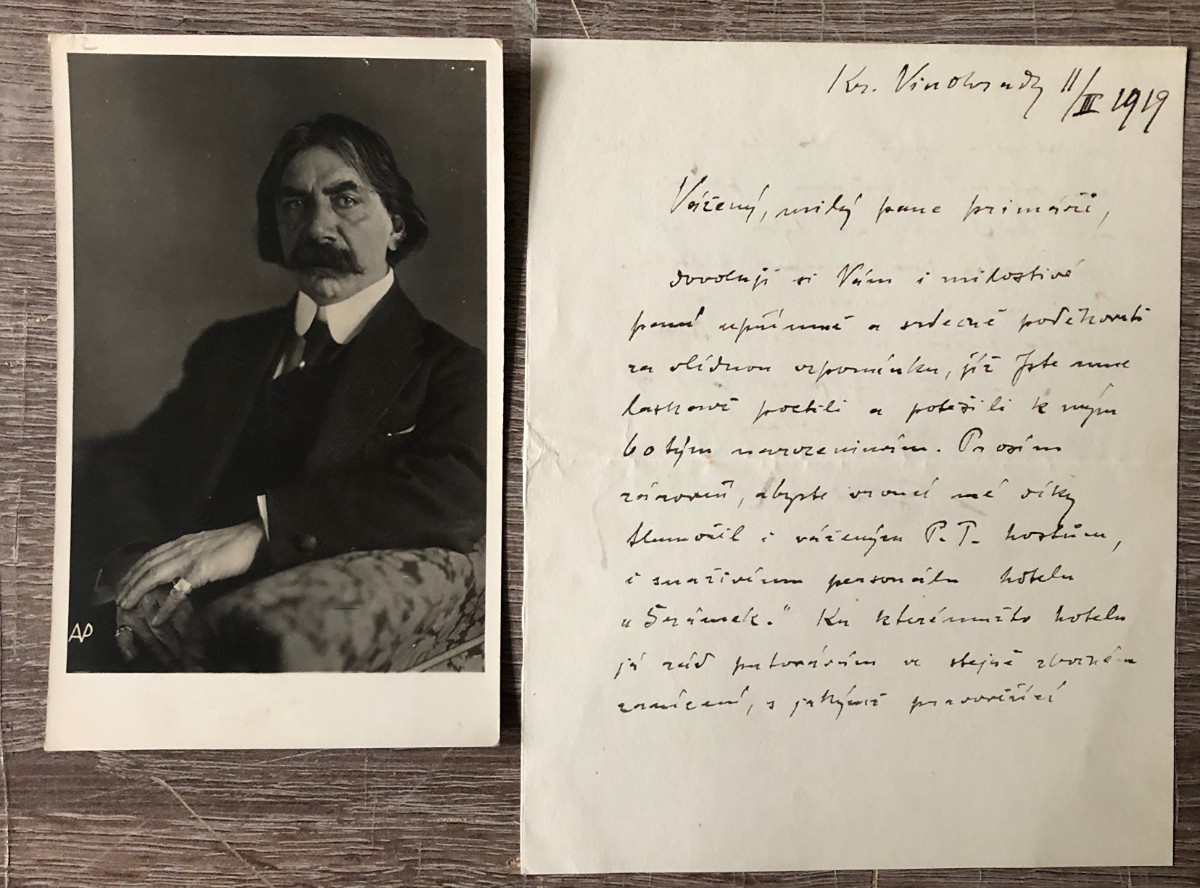 12
AP
Kr. Vinohrady 11/III 1919
Vážený, milý pane primáři,
dovoluji si Vám i milostivé
paní upřímně a srdečně poděkovati
za vlídnou vzpomínku, jíž Jste mne
laskavě poctili a potěšili k mým
60tým narozeninám. Prosím
zároveň, abyste vroucí mé díky
tlumočil i váženým P. T. hostům,
i snaživému personálu hotelu
„Šrámek." Ku kterémužto hotelu
já rád putovávám ve stejně zbožném
zanícení, s jakýmž pravověřící